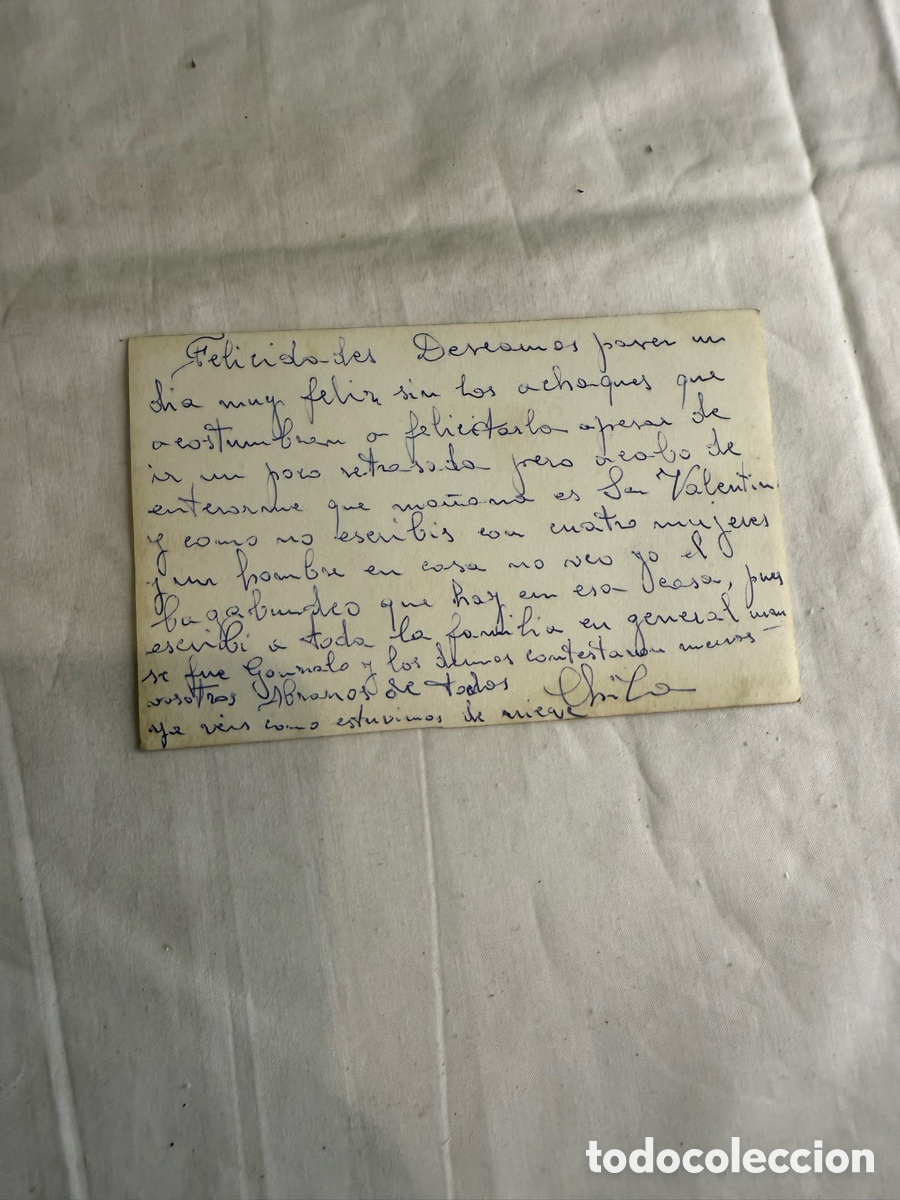 Felicidades Deseamos pasen un
dia muy feliz sin los achaques que
acostumbran a felicitarla apesar de
ir un poco retrasada pero acabo de
enterarme que mañana es San Valentin
y como no escribis con cuatro mujeres
y un hombre en casa no veo yo el
bagabundeo que hay en esa casa, pues
escribi a toda la familia en general
se fue Gonzalo y los demas contestaron menos
vosotros Abrazos de todos
ya veis como estuvimos de nieve
todocoleccion